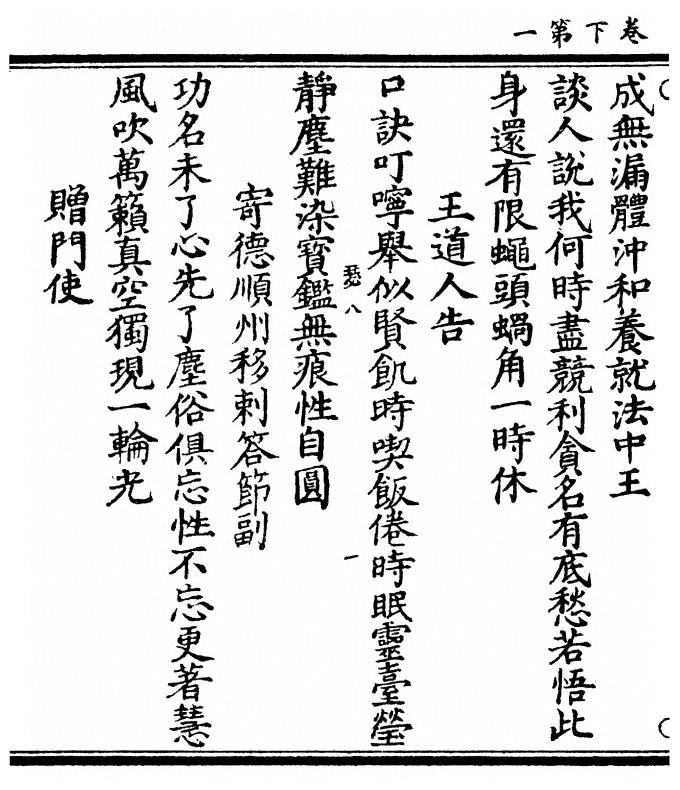 卷下第一
成無漏體沖和養就法中王
談人說我何時盡競利貪名有底愁若悟此
身還有限蠅頭蝸角一時休
王道人告
口訣叮嚀舉似賢飢時喫飯倦時眠靈臺瑩
八
一
靜塵難染寶鑑無痕性自圓
寄德順州移剌答節副
功名未了心先了塵俗俱忘性不忘更著慧
風吹萬籟真空獨現一輪光
贈門使